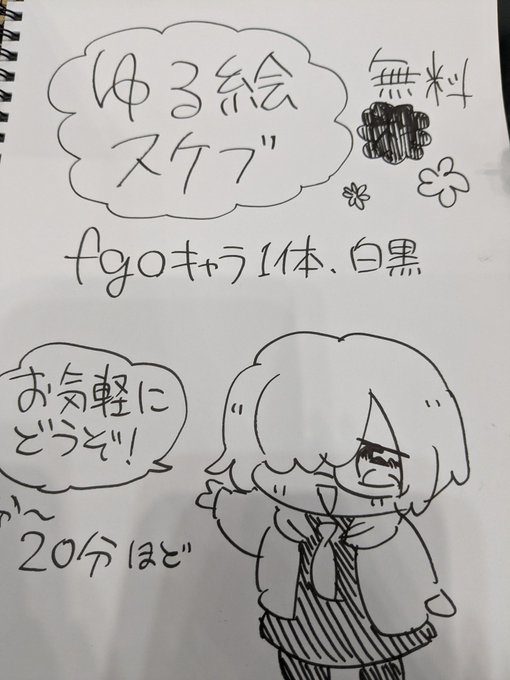 ゆる絵
スケブ
無料
fgoキャラ1体、白黒
お気軽に
どうぞ!
20分ほど